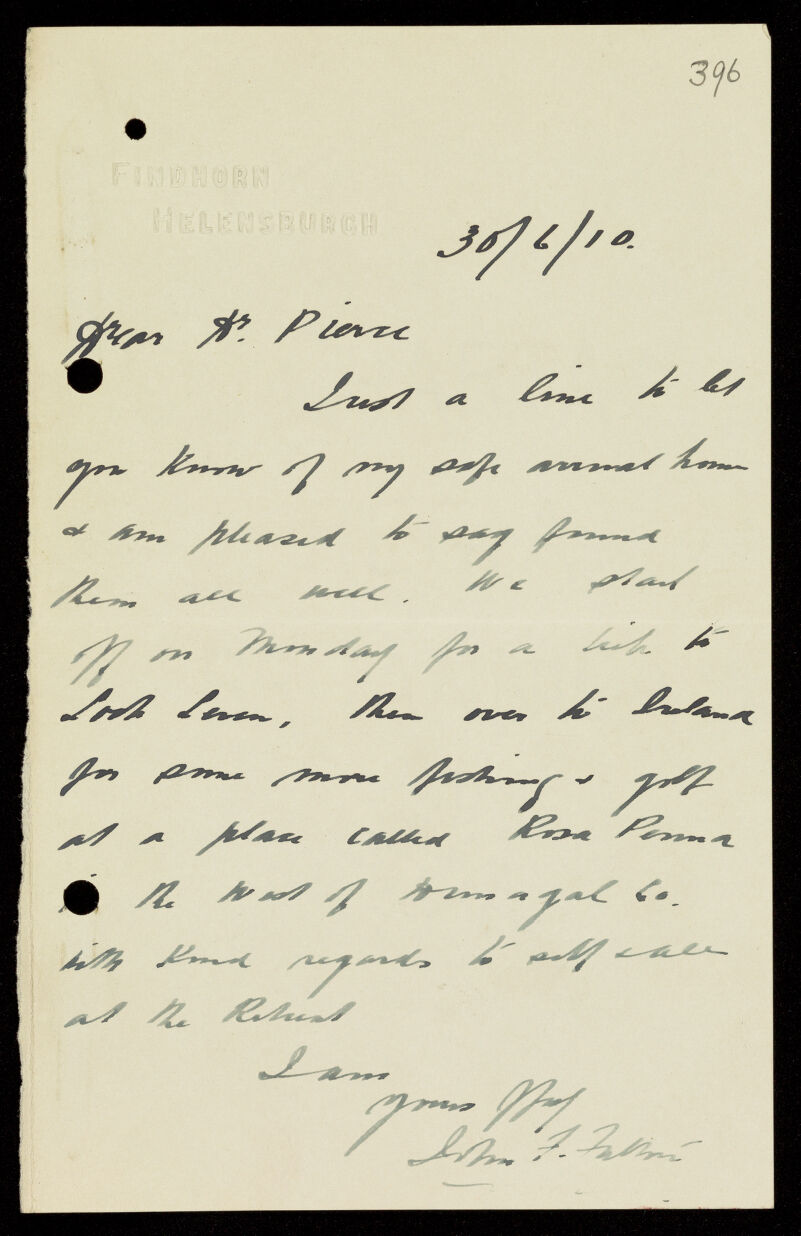 396
FINDHORN
HELENSBURGH
30/6/10.
Dear Dr. Pierce
Just a line to let
you know of my safe arrival home
& am pleased to say found
them all well. We start
off on Monday for a trip to
Loch Leven, then over to Ireland
for some more fishing & golf
at a place called Rosa Penna
the West of Donnagal Co.
with kind regards to self & all
at the Retreat
I am
yours ffly
John F.